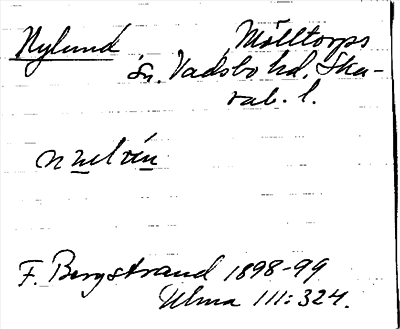 Nylund Mölltorps
sn. Vadsbo hd, Ska-
rab. l.
F. Bergstrand 1898-99
Ulma 111:324.